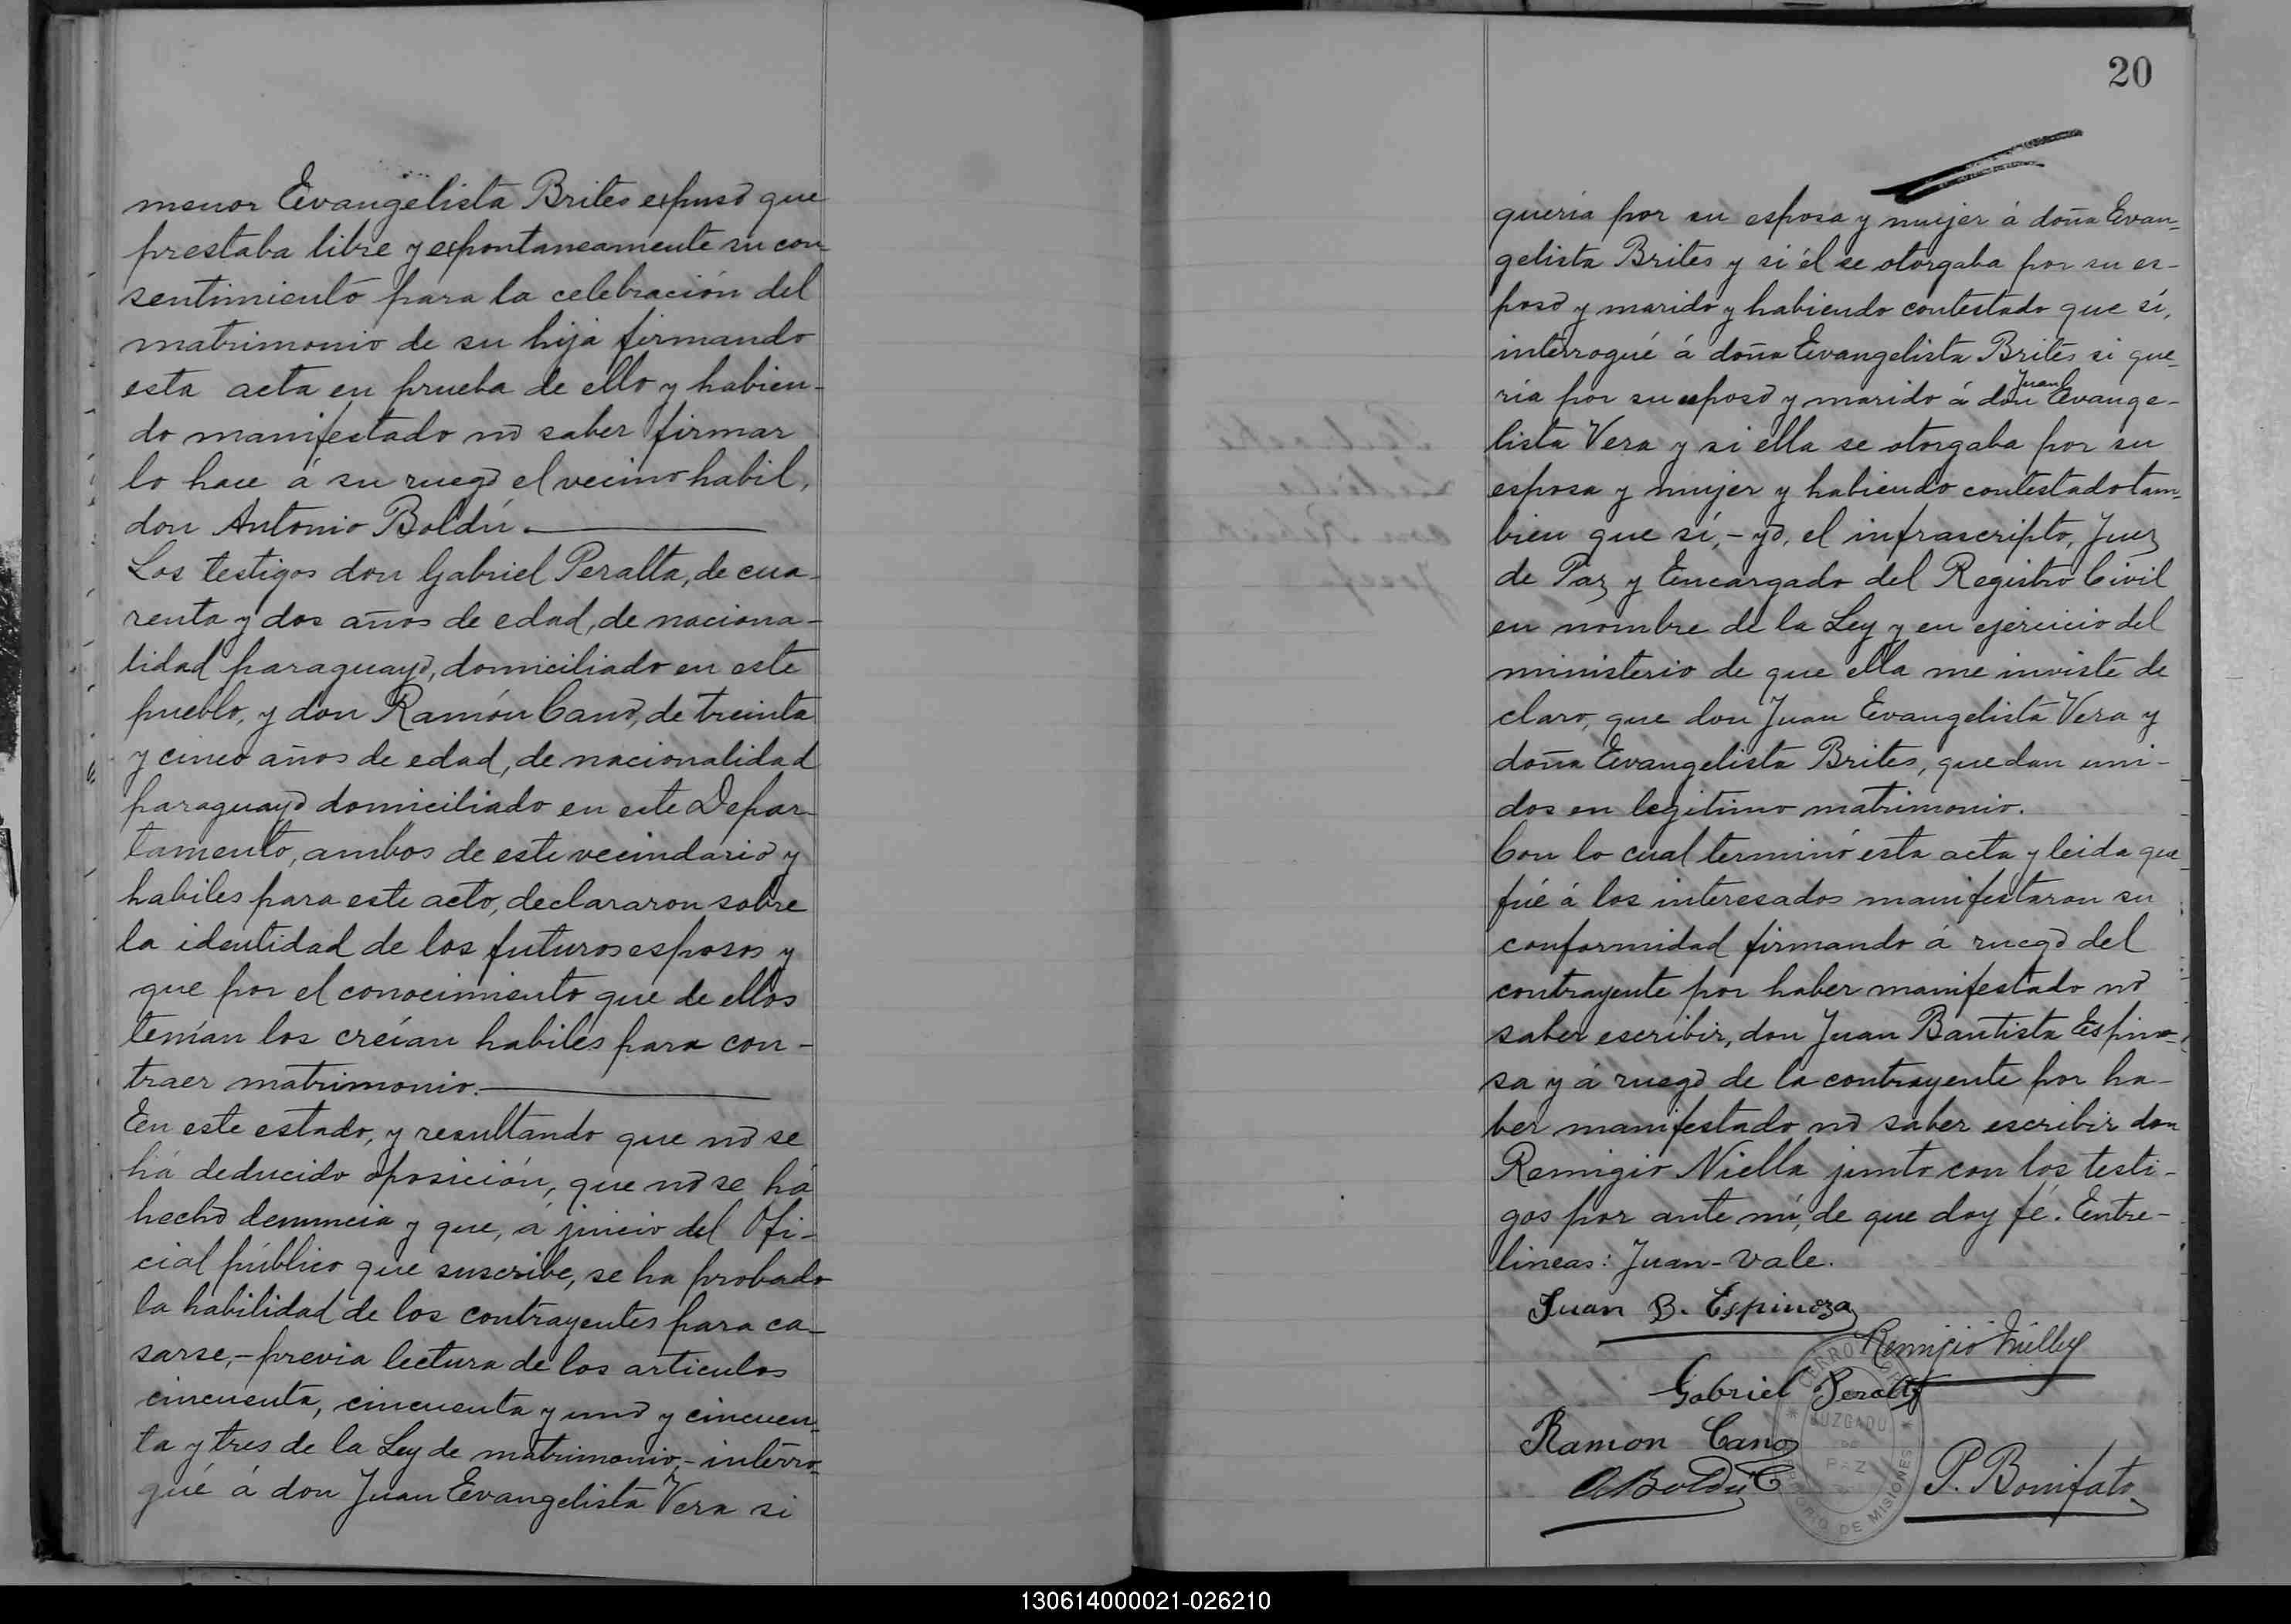 menor Evangelista Brites expuso que
prestaba libre y expontaneamente su con-
sentimiento para la celebración del
matrimonio de su hija firmando
esta acta en prueba de ello y habien-
do manifestado no saber firmar
lo hace á su ruego el vecino habil,
don Antonio Boldú.
Los testigos don Gabriel Peralta, de cua-
renta y dos años de edad, de naciona-
lidad paraguayo, domiciliado en este
pueblo, y don Ramón Cano, de treinta
y cinco años de edad, de nacionalidad
paraguayo domiciliado en este Depar-
tamento, ambos de este vecindario y
habiles para este acto, declararon sobre
la identidad de los futuros esposos y
que por el conocimiento que de ellos
tenían los creían habiles para con-
traer matrimonio.
En este estado, y resultando que no se
há deducido oposición, que no se há
hecho denuncia y que, á juicio del Ofi-
cial público que suscribe, se ha probado
la habilidad de los contrayentes para ca-
sarse,- previa lectura de los articulos
cincuenta, cincuenta y uno y cincuen-
ta y tres de la Ley de matrimonio,- interro-
gué á don Juan Evangelista Vera si
20
quería por su esposa y mujer á doña Evan-
gelista Brites y si él se otorgaba por su es-
poso y marido y habiendo contestado que sí,
interrogué á doña Evangelista Brites si que-
Juan
ría por su esposo y marido á don Evange-
lista Vera y si ella se otorgaba por su
esposa y mujer y habiendo contestado tam-
bien que sí,- yo, el infrascripto, Juez
de Paz y Encargado del Registro Civil
en nombre de la Ley y en ejercicio del
ministerio de que ella me inviste de
claro, que don Juan Evangelista Vera y
doña Evangelista Brites, quedan uni-
dos en legitimo matrimonio.
Con lo cual terminó esta acta y leida que
fué á los interesados manifestaron su
conformidad firmando á ruego del
contrayente por haber manifestado no
saber escribir, don Juan Bautista Espino-
sa y á ruego de la contrayente por ha-
ber manifestado no saber escribir don
Remigio Niella junto con los testi-
gos por ante mí, de que doy fé. Entre-
lineas: Juan - vale.
Juan B. Espinoza
Remigio Niella
Gabriel Peralta
Ramon Cano
A Boldú
P. Bonifato
CERRO
JUZGADO
DE
PAZ
TERRITORIO DE MISIONES
130614000021-026210